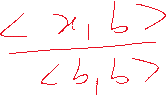 < x, b >
< b, b >